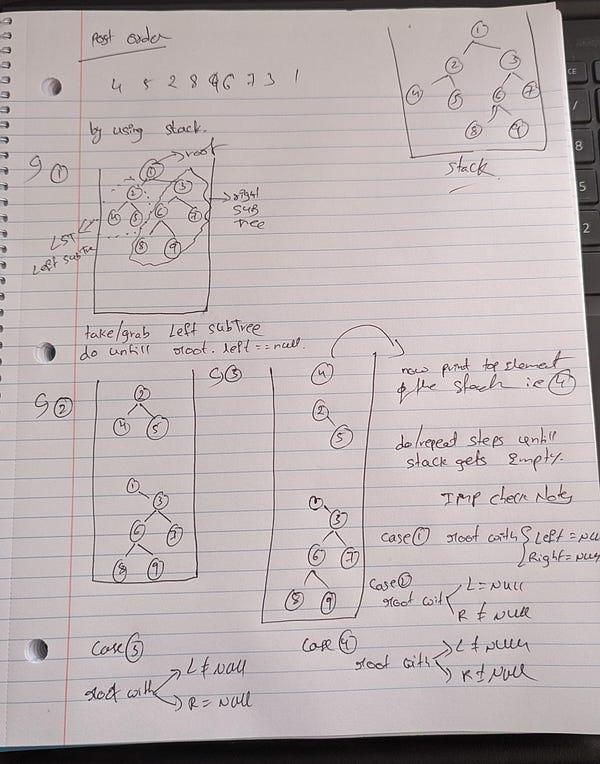 Post Order
4 5 2 8 9 6 7 3 1
1
2 3
4 5 6 7
8 9
Stack
by using stack.
S ①
root
1
2 3
4 5 6 7
8 9
LST
Left subTree
right
SUB
Tree
take/grab Left subTree
do untill root.left == null.
S ②
2
4 5
1
3
6 7
8 9
S ③
4
2
5
1
3
6 7
8 9
now print top element
of the stack i.e ④
do/repeat steps untill
stack gets Empty.
IMP check Notes
Case ① root with { Left = Nu
Right = Null
Case ②
root wit
L = Null
R ≠ Null
Case ③
root with
L ≠ Null
R = Null
Case ④
root with
L ≠ Null
R ≠ Null
CE
/
8
5
2